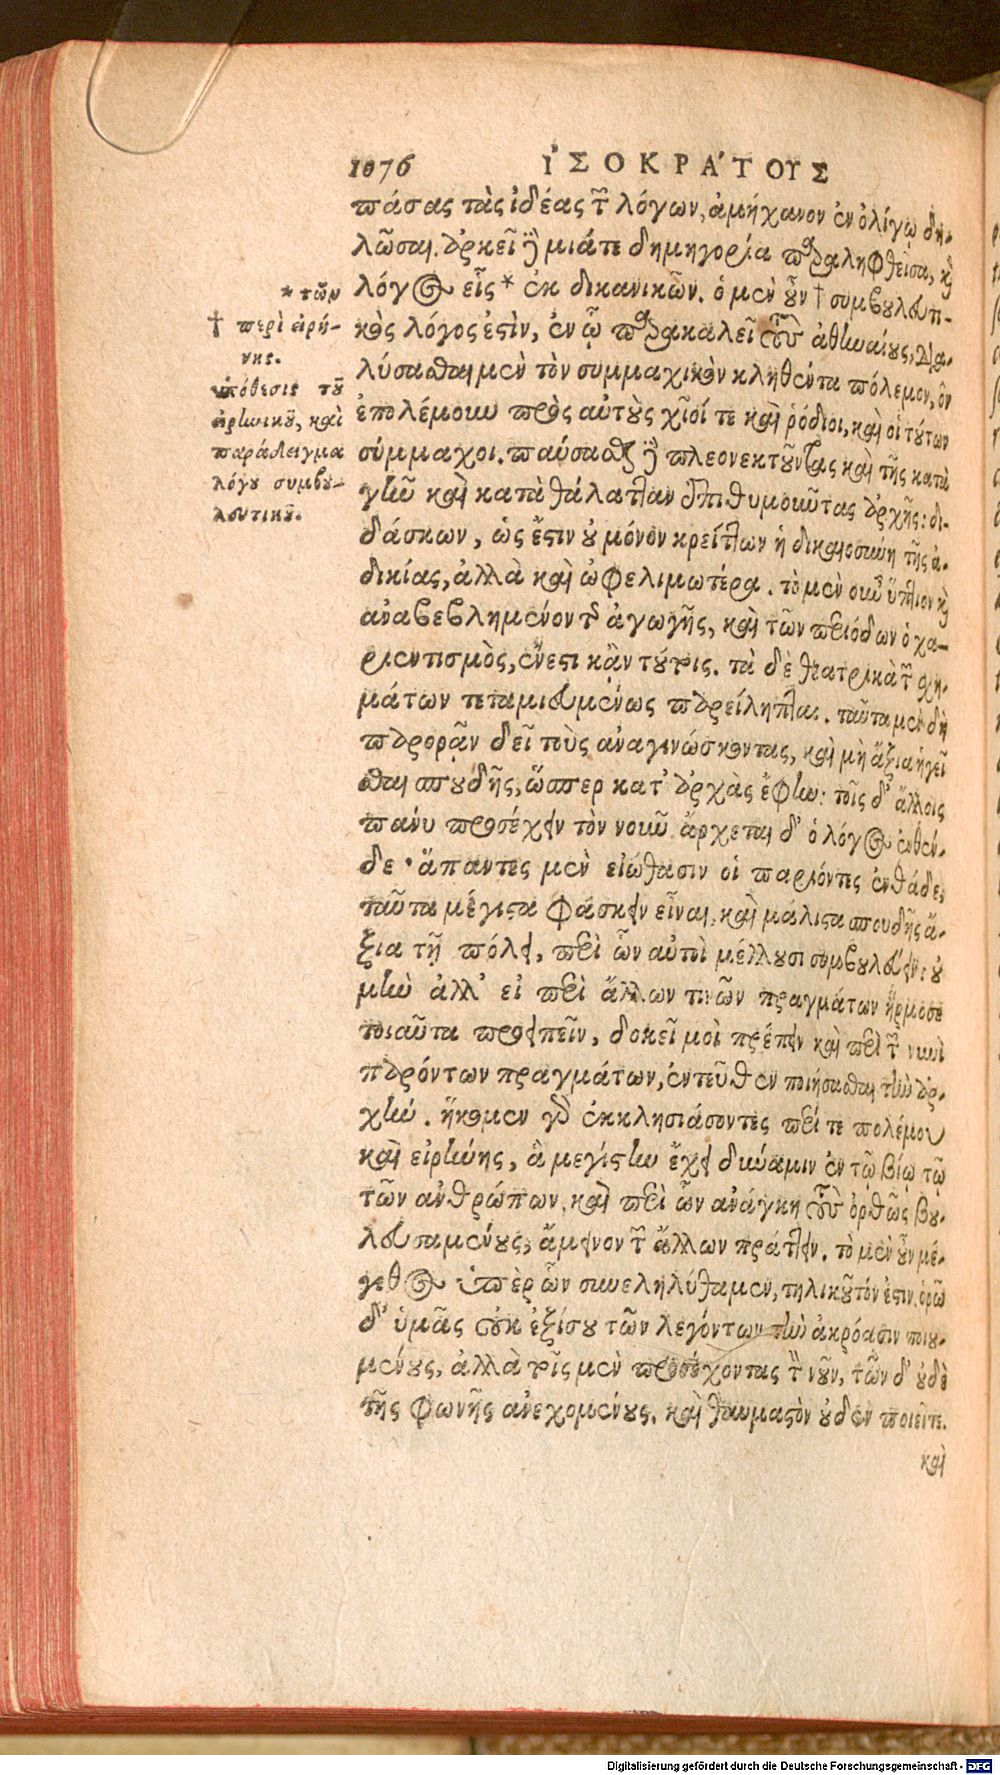 1076 ἸΣΟΚΡΆΤΟΥΣ
πάσας τὰς ἰδέας τῶν λόγων, ἀμήχανον ἐν ὀλίγῳ δη-
λῶσαι. ἀρκεῖ δὲ μιάτε δημηγορία παραληφθεῖσα, καὶ
λόγος εἷς* ἐκ δικανικῶν. ὁ μὲν οὖν † συμβουλευτι-
κὸς λόγος ἐστὶν, ἐν ᾧ παρακαλεῖ τοὺς ἀθηναίους, δια-
λύσασθαι μὲν τὸν συμμαχικὸν κληθέντα πόλεμον, ὃν
ἐπολέμουν πρὸς αὐτοὺς χῖοί τε καὶ ῥόδιοι, καὶ οἱ τούτων
σύμμαχοι. παύσασθαι δὲ πλεονεκτοῦντας καὶ τῆς κατὰ
γῆν καὶ κατὰ θάλατταν ἐπιθυμοῦντας ἀρχῆς: δι-
δάσκων, ὡς ἔστιν οὐ μόνον κρείττων ἡ δικαιοσύνη τῆς ἀ-
δικίας, ἀλλὰ καὶ ὠφελιμωτέρα. τὸ μὲν οὖν ὕπτιον καὶ
ἀναβεβλημένον τῆς ἀγωγῆς, καὶ τῶν περιόδων ὁ χα-
ριεντισμὸς, ἔνεστι κᾂν τούτοις. τὰ δὲ θεατρικὰ τῶν σχη-
μάτων τεταμιευμένως παρείληπται. ταῦτα μὲν δὴ
παρορᾷν δεῖ τοὺς ἀναγινώσκοντας, καὶ μὴ ἄξια ἡγεῖ
σθαι σπουδῆς, ὥσπερ κατ' ἀρχὰς ἔφην: τοῖς δ' ἄλλοις
πάνυ προσέχειν τὸν νοῦν ἄρχεται δ' ὁ λόγος ἐνθέν-
δε· ἅπαντες μὲν εἰώθασιν οἱ παριόντες ἐνθάδε,
ταῦτα μέγιστα φάσκειν εἶναι, καὶ μάλιστα σπουδῆς ἄ-
ξια τῇ πόλει, περὶ ὧν αὐτοὶ μέλλουσι συμβουλεύειν: οὐ
μὴν ἀλλ' εἰ περὶ ἄλλων τινῶν πραγμάτων ἥρμοσε
τοιαῦτα προειπεῖν, δοκεῖ μοὶ πρέπειν καὶ περὶ τῶν νυνὶ
παρόντων πραγμάτων, ἐντεῦθεν ποιήσασθαι τὴν ἀρ-
χήν. ἥκομεν γὰρ ἐκκλησιάσοντες περί τε πολέμου
καὶ εἰρήνης, ἃ μεγίστην ἔχει δύναμιν ἐν τῷ βίῳ τῷ
τῶν ἀνθρώπων, καὶ περὶ ὧν ἀνάγκη τοὺς ὀρθῶς βου-
λευσαμένους, ἄμεινον τῶν ἄλλων πράττειν. τὸ μὲν οὖν μέ-
γεθος ὑπὲρ ὧν συνεληλύθαμεν, τηλικοῦτόν ἐστιν. ὁρῶ
δ' ὑμᾶς οὐκ ἐξίσου τῶν λεγόντων τὴν ἀκρόασιν ποιου-
μένους, ἀλλὰ τοῖς μὲν προσέχοντας τὸν νοῦν, τῶν δ' οὐδὲ
τῆς φωνῆς ἀνεχομένους. καὶ θαυμαστὸν οὐδὲν ποιεῖτε.
καὶ
* τῶν
† περὶ εἰρή-
νης.
ὑπόθεσις τοῦ
εἰρηνικοῦ, καὶ
παράδειγμα
λόγου συμβου-
λευτικοῦ.
Digitalisierung gefördert durch die Deutsche Forschungsgemeinschaft - DFG